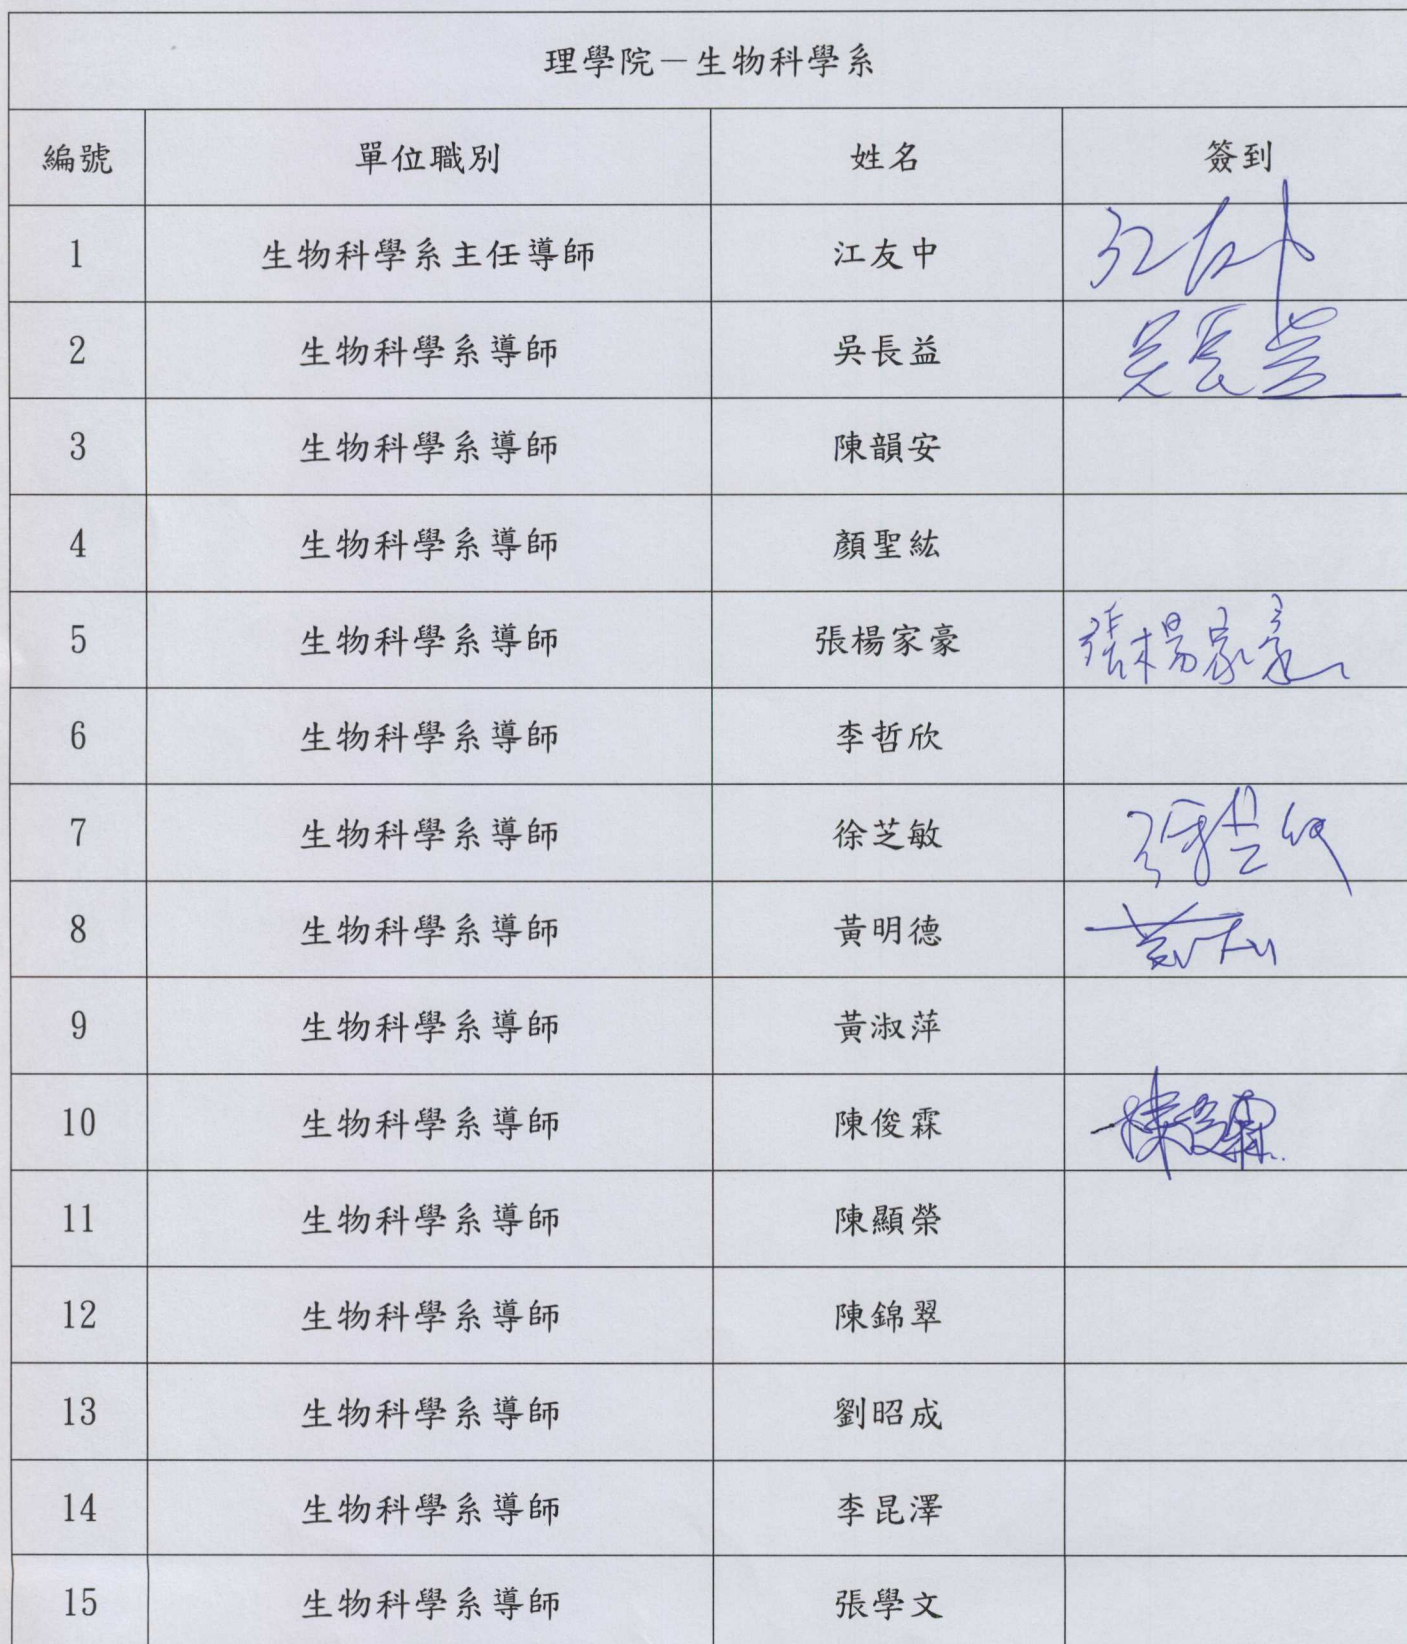 理學院－生物科學系
編號 單位職別 姓名 簽到
1 生物科學系主任導師 江友中 江友中
2 生物科學系導師 吳長益 吳長益
3 生物科學系導師 陳韻安
4 生物科學系導師 顏聖紘
5 生物科學系導師 張楊家豪 張楊家豪
6 生物科學系導師 李哲欣
7 生物科學系導師 徐芝敏
8 生物科學系導師 黃明德
9 生物科學系導師 黃淑萍
10 生物科學系導師 陳俊霖 陳俊霖
11 生物科學系導師 陳顯榮
12 生物科學系導師 陳錦翠
13 生物科學系導師 劉昭成
14 生物科學系導師 李昆澤
15 生物科學系導師 張學文